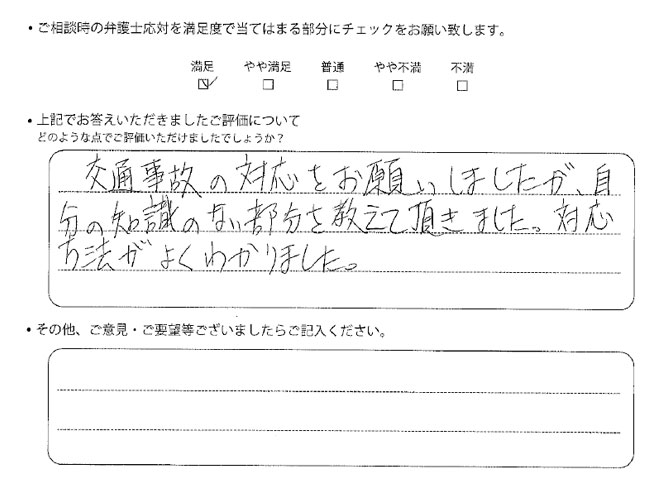 ・ご相談時の弁護士応対を満足度で当てはまる部分にチェックをお願い致します。
満足 やや満足 普通 やや不満 不満
☑ □ □ □ □
・上記でお答えいただきましたご評価について
どのような点でご評価いただけましたでしょうか？
交通事故の対応をお願いしましたが、自
分の知識のない部分を教えて頂きました。対応
方法がよくわかりました。
・その他、ご意見・ご要望等ございましたらご記入ください。